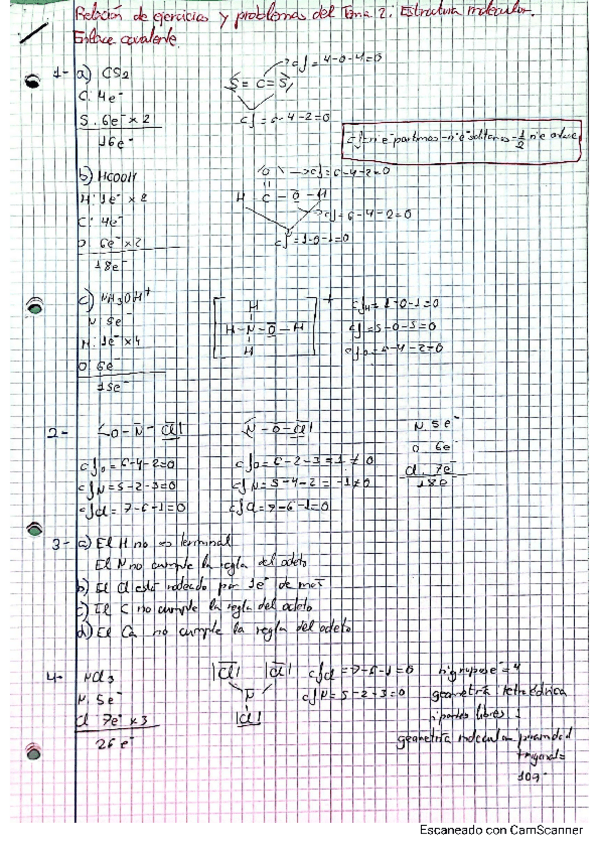 Relación de ejercicios y problemas del Tema 2. Estructura molecular.
Enlace covalente.
1- a) CS2
C: 4e-
S: 6e- x 2
16e-
S = C = S
cf = 4-0-4=0
cf = 6-4-2=0
cf = nº e- partimos - nº e- solitarios - 1/2 nº e- enlace
b) HCOOH
H: 1e- x 2
C: 4e-
O: 6e- x 2
18e-
O
H C - O - H
cf = 6-4-2=0
cf = 6-4-2=0
cf = 1-0-1=0
c) NH3OH+
N 5e-
H: 1e- x4
O: 6e-
15e-
H
H-N-O-H
H
+
cfH = 1-0-1=0
cf = 5-0-5=0
cfO = 6-4-2=0
2- O-N-Cl
cfO = 6-4-2=0
cfN = 5-2-3=0
cfCl = 7-6-1=0
N-O-Cl
cfO = 6-2-3=1 ≠ 0
cfN = 5-4-2 = -1 ≠ 0
cfCl = 7-6-1=0
N. 5e-
O. 6e-
Cl. 7e-
18e-
3- a) El H no es terminal
El N no cumple la regla del octeto
b) El Cl está rodeado por 1e- de mas
c) El C no cumple la regla del octeto
d) El Ca no cumple la regla del octeto
4- NCl3
N. 5e-
Cl 7e- x 3
26e-
Cl Cl
N
Cl
cfCl = 7-6-1=0
cfN = 5-2-3=0
nº grupos e- = 4
geometría tetraédrica
nº partes libres 1
geometría molecular piramidal
trigonal
107º
Escaneado con CamScanner